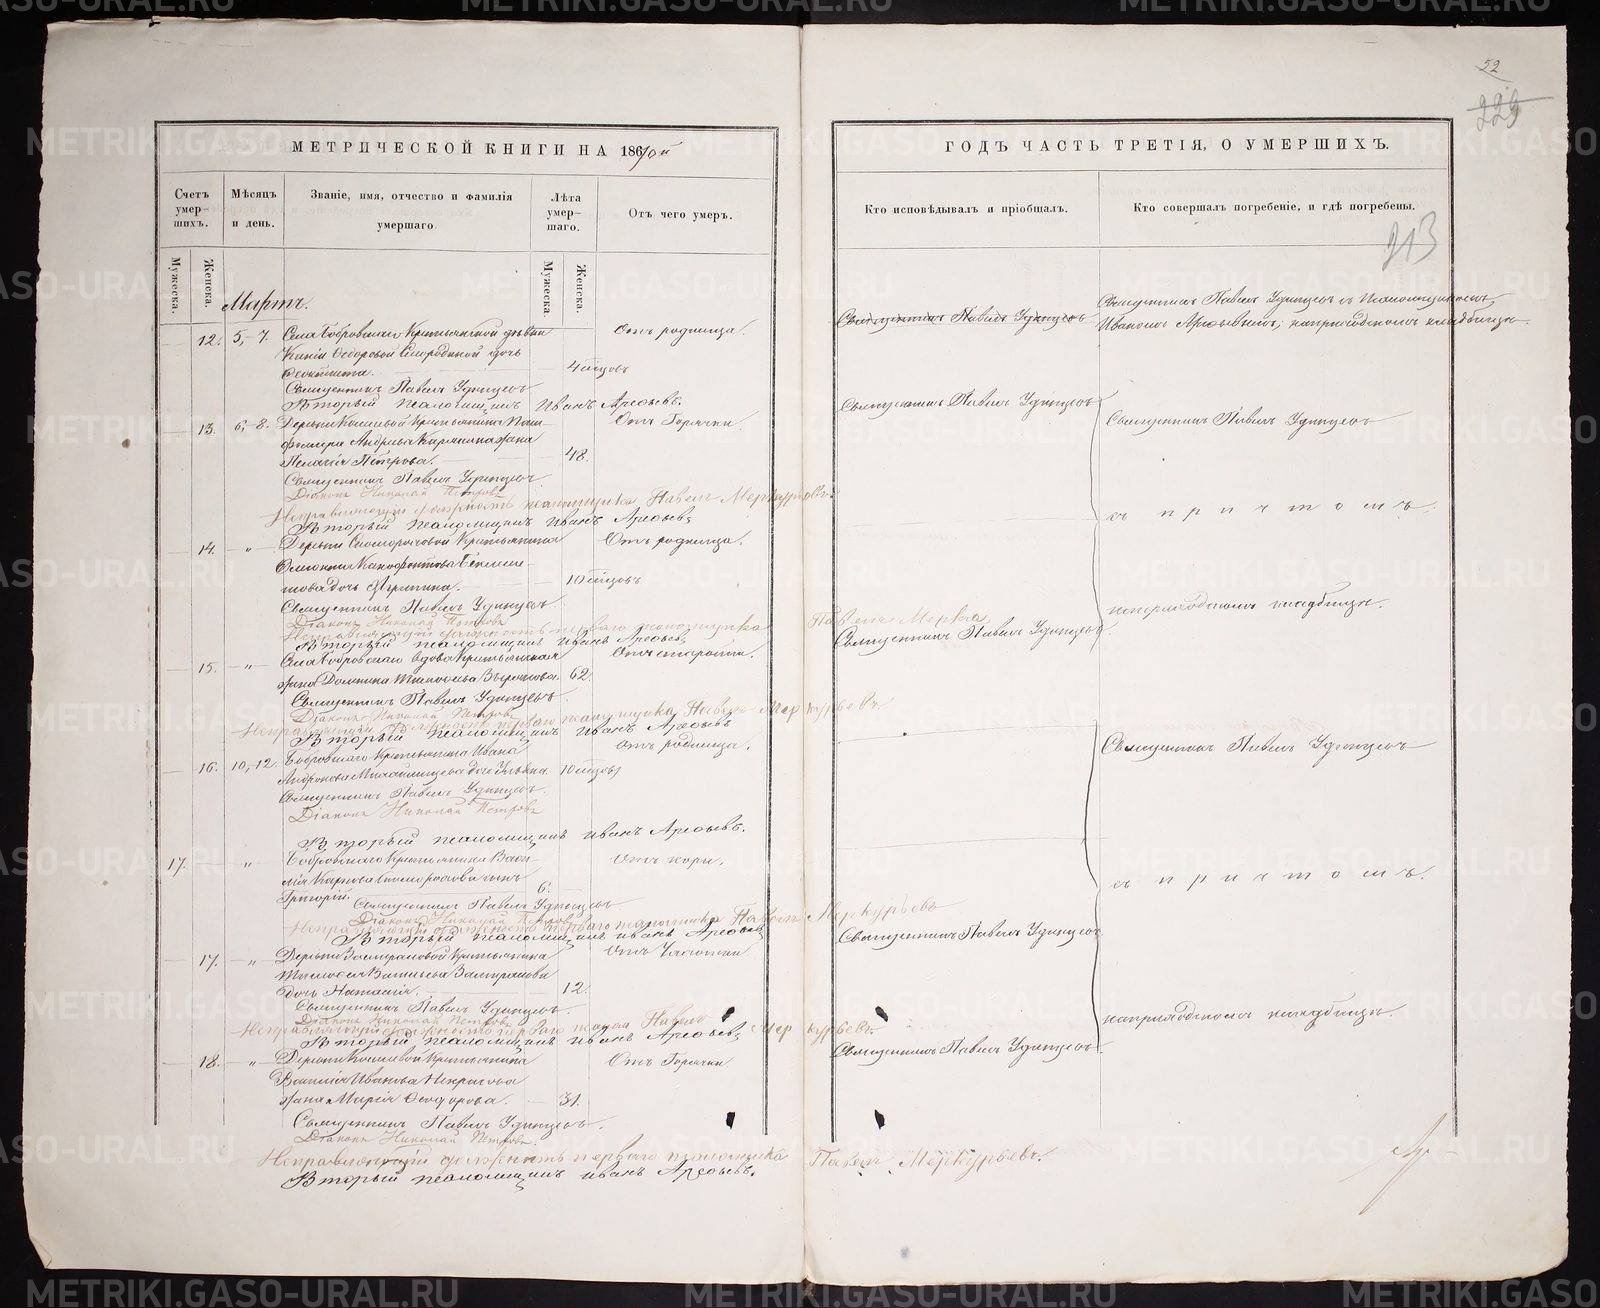 52
229
213
МЕТРИЧЕСКОЙ КНИГИ НА 1870й
ГОДЪ ЧАСТЬ ТРЕТІЯ, О УМЕРШИХЪ.
Счетъ умершихъ.
Мѣсяцъ и день.
Званіе, имя, отчество и фамилія умершаго.
Лѣта умершаго.
Отъ чего умеръ.
Кто исповѣдывалъ и пріобщалъ.
Кто совершалъ погребеніе, и гдѣ погребены.
Мужеска.
Женска.
Мужеска.
Женска.
Мартъ.
Священникъ Павелъ Удинцевъ
Священникъ Павелъ Удинцевъ съ Псаломщикомъ
Иваномъ Арефьевымъ; на приходскомъ кладбищѣ.
12. 5,-7. Села Бобровскаго Крестьянской дѣвки Отъ родимца.
Ѳедоровой дочь
4 мѣсяцовъ
Священникъ Павелъ Удинцевъ
Вторый псаломщикъ Иванъ Арефьевъ.
Священникъ Павелъ Удинцевъ
13. 6,-8. Деревни Крестьянина Отъ Горячки.
Андреева жена
Пелагія Петрова. 48.
Священникъ Павелъ Удинцевъ
Священникъ Павелъ Удинцевъ
Діаконъ Николай Петровъ
Исправляющій должность псаломщика Павелъ Меркурьевъ
Вторый псаломщикъ Иванъ Арефьевъ
съ причтомъ.
14. " Деревни Крестьянина Отъ родимца.
дочь 10 мѣсяцовъ
Священникъ Павелъ Удинцевъ.
на приходскомъ кладбищѣ.
Діаконъ Николай Петровъ
Исправляющій должность перваго псаломщика Павелъ
Вторый псаломщикъ Иванъ Арефьевъ
Священникъ Павелъ Удинцевъ
15. " Села Бобровскаго вдова Крестьянская Отъ старости.
жена Домника 62.
Священникъ Павелъ Удинцевъ
Діаконъ Николай Петровъ
Исправляющій должность перваго псаломщика Павелъ Меркурьевъ.
Вторый псаломщикъ Иванъ Арефьевъ
16. 10,-12. Бобровскаго Крестьянина Ивана Отъ родимца.
дочь Ульяна 10 мѣсяцовъ
Священникъ Павелъ Удинцевъ.
Священникъ Павелъ Удинцевъ
Діаконъ Николай Петровъ
Вторый псаломщикъ Иванъ Арефьевъ.
17. " Бобровскаго Крестьянина Васи- Отъ кори.
лія Карпова сынъ
Григорій. 6.
съ причтомъ.
Священникъ Павелъ Удинцевъ
Діаконъ Николай Петровъ
Исправляющій должность перваго псаломщика Павелъ Меркурьевъ
Вторый псаломщикъ Иванъ Арефьевъ
Священникъ Павелъ Удинцевъ
17. " Деревни Крестьянина Отъ Чахотки
дочь Наталія. 12.
Священникъ Павелъ Удинцевъ.
на приходскомъ кладбищѣ.
Діаконъ Николай Петровъ
Исправляющій должность перваго Павелъ Меркурьевъ.
Вторый псаломщикъ Иванъ Арефьевъ
Священникъ Павелъ Удинцевъ.
18. " Деревни Крестьянина Отъ Горячки
Василія Иванова Некрасова
жена Марія Ѳеодорова. 31.
Священникъ Павелъ Удинцевъ.
Діаконъ Николай Петровъ.
Исправляющій должность перваго псаломщика Павелъ Меркурьевъ.
Вторый псаломщикъ Иванъ Арефьевъ.
METRIKI.GASO-URAL.RU